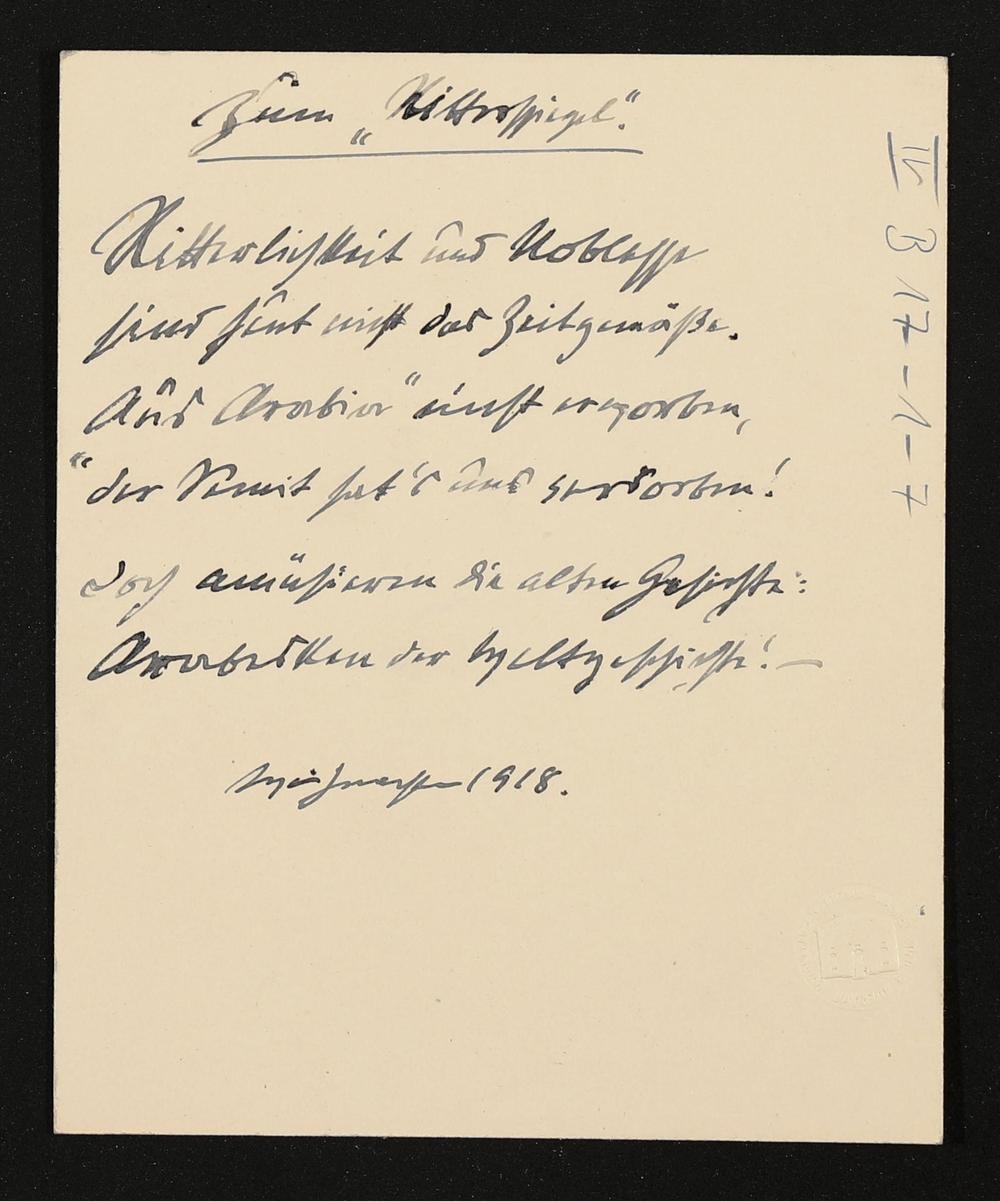 Zum „Ritterspiegel“.
Ritterlichkeit und Noblesse
sind heut nicht das Zeitgemäße.
Aus Arabia “ einst erworben,
“ der Semit hat's uns verdorben!
Doch amüsieren die alten Gesichte:
Arabesken der Weltgeschichte! —
Weihnachten 1918.
IV B 17-1-7